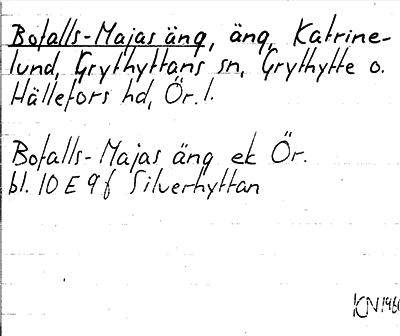 Bofalls-Majas äng, äng, Katrine-
lund, Grythyttans sn, Grythytte o.
Hällefors hd, Ör. l.
Bofalls-Majas äng ek Ör.
bl. 10 E 9 f Silverhyttan
KN 1960